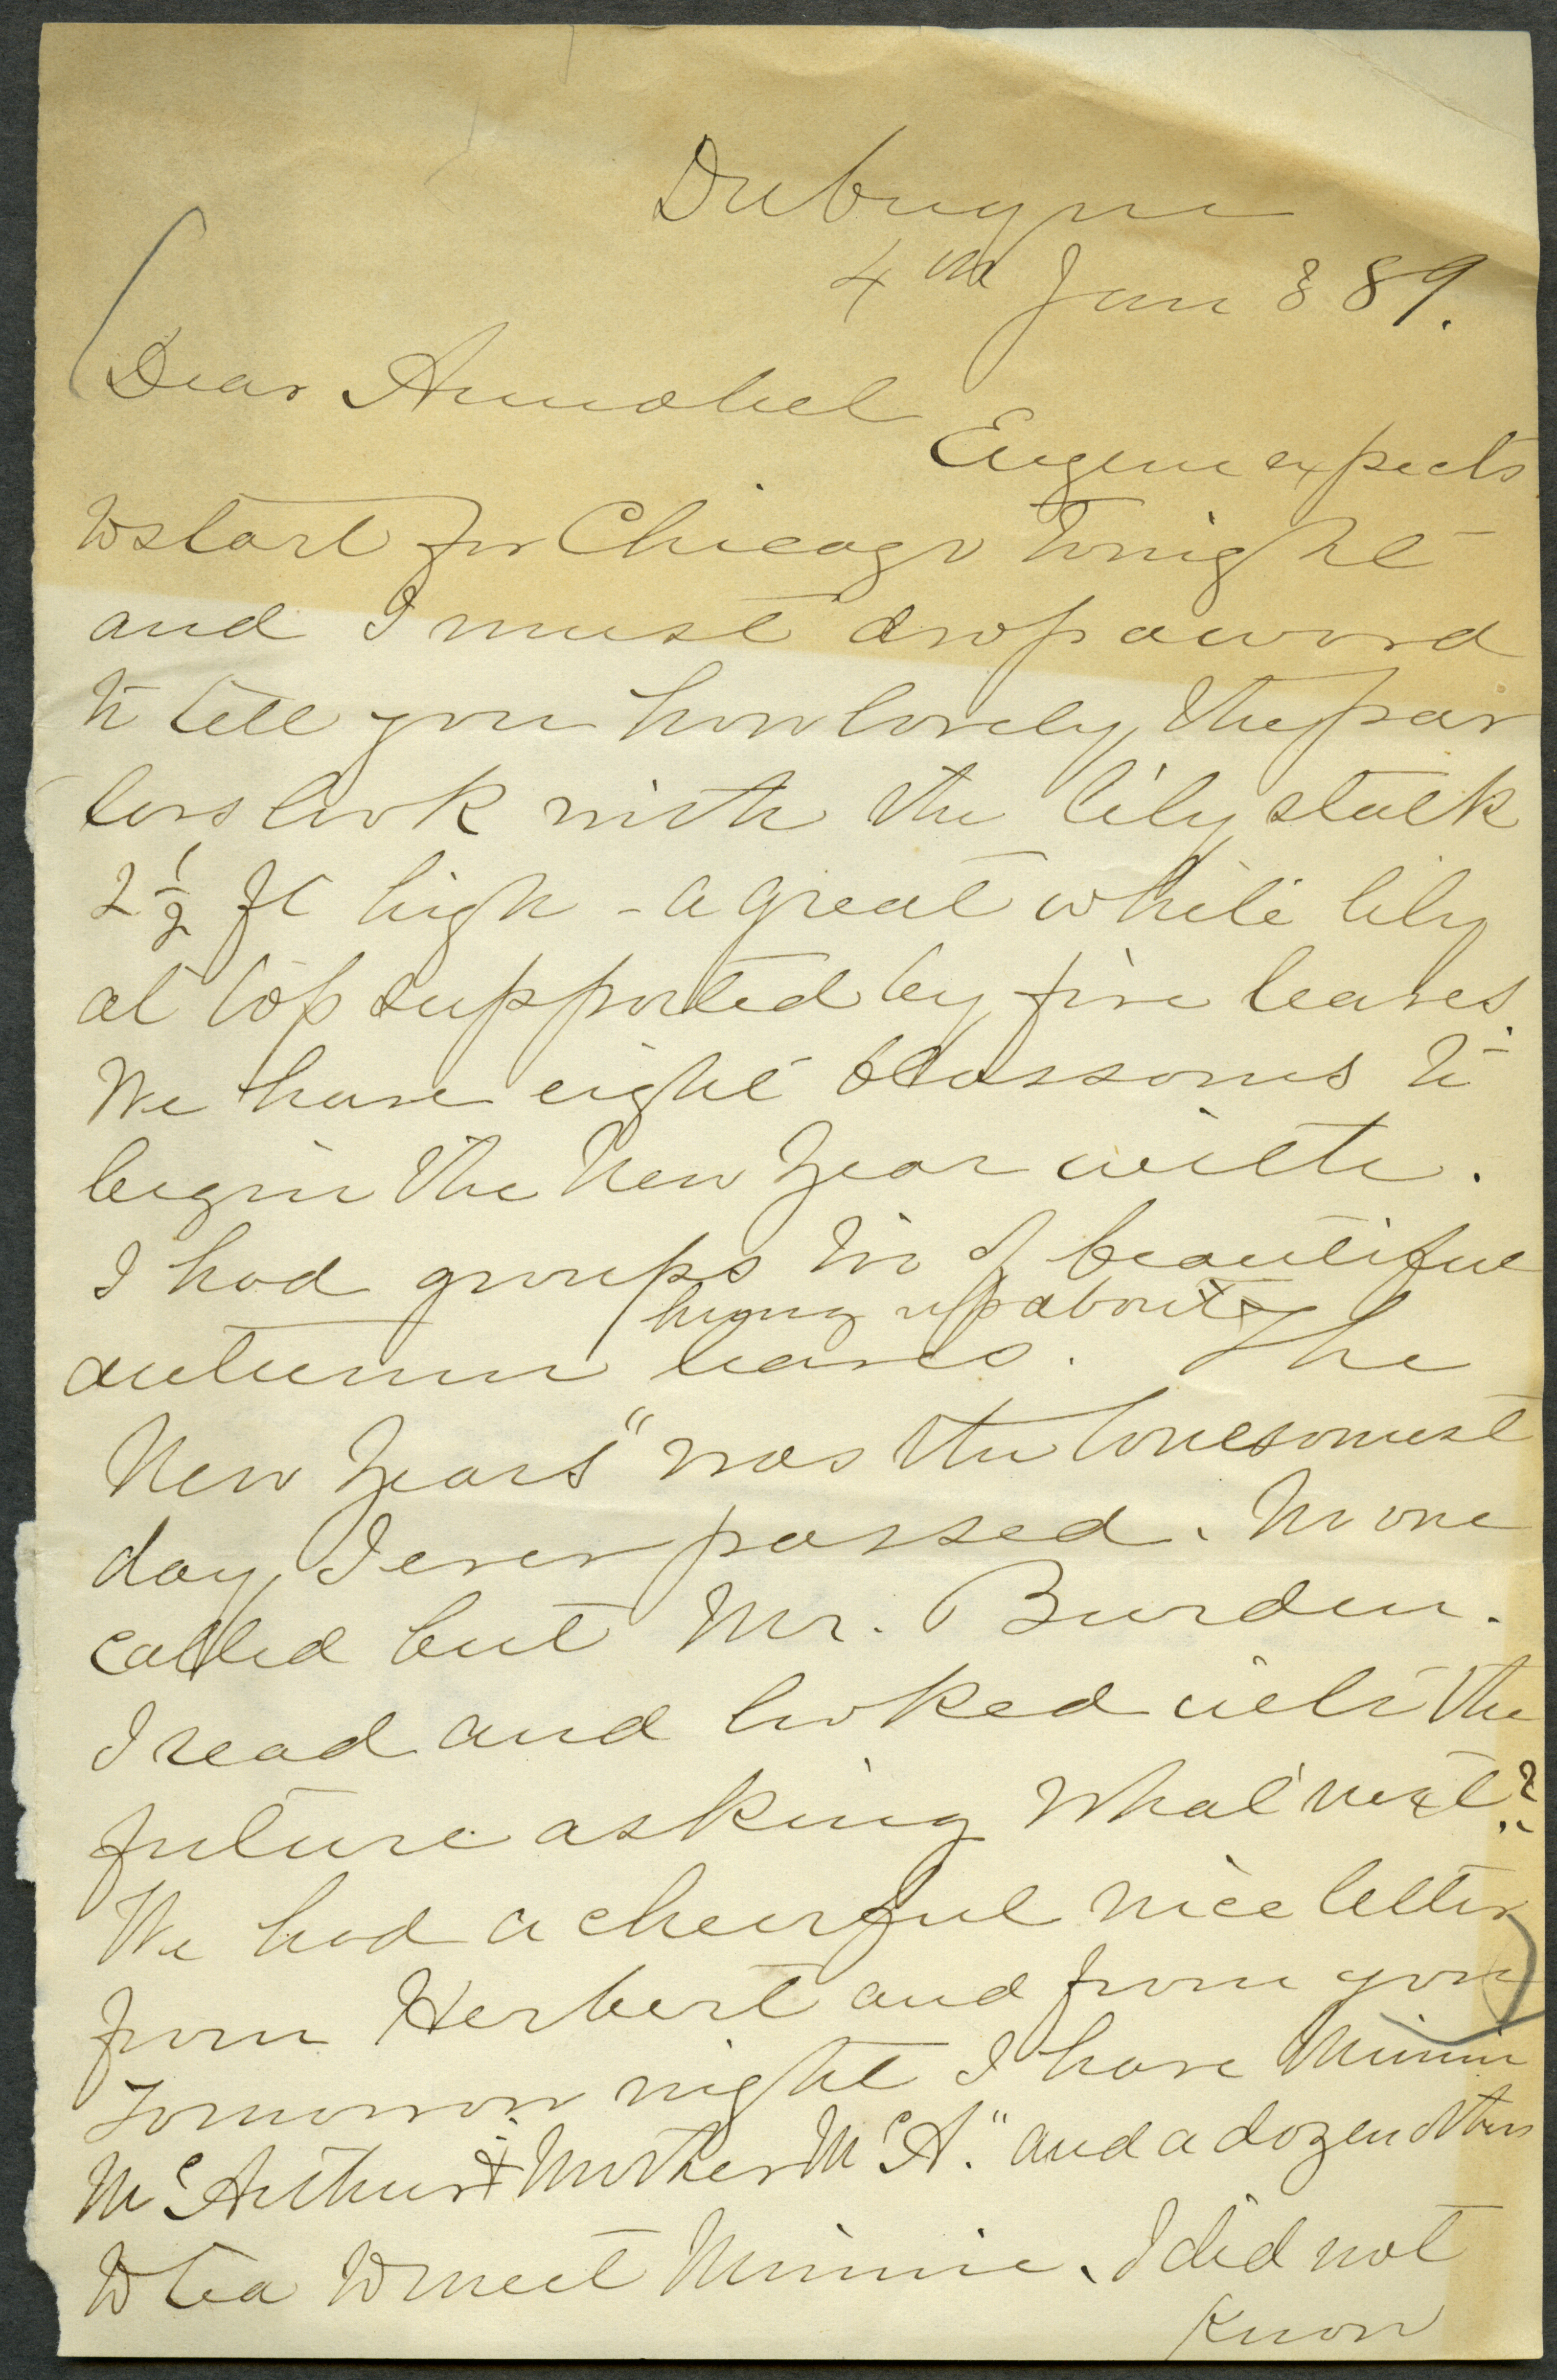 Dubuque
4th Jan 889.
Dear Annabel
Eugene expects
to start for Chicago tonight
and I must drop a word
to tell you how lovely the par
lors look with the lily stalk
2 1/2 ft high - a great white lily
at top supported by five leaves.
We have eight blossoms to
begin the New Year with.
I had groups too of beautiful
hung up about
autumn leaves. The
New Years" was the lonesomest
day I ever passed. No one
called but Mr. Burden.
I read and looked into the
future asking what next?
We had a cheerful nice letter
from Herbert and from you
Tomorrow night I have Minnie
McArthur & "Mother McA." and a dozen others
to tea to meet Minnie. I did not
know